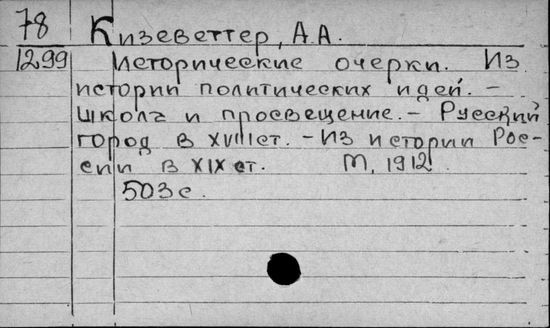 78
Кизеветтер, А.А.
1299
Исторические очерки. Из
истории политических идей. –
Школа и просвещение. – Русский
город в XVIII ст. – Из истории Рос-
сии в XIX ст. М, 1912.
503 с.